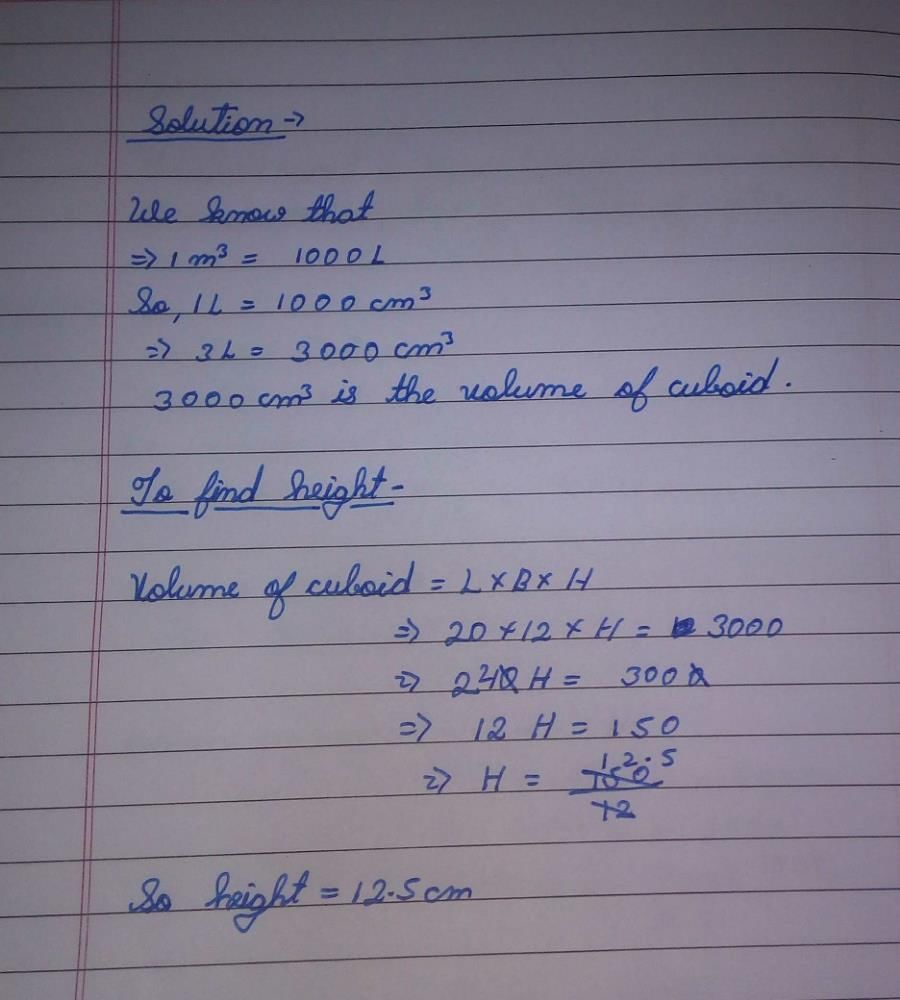 Solution →
We know that
⇒ 1 m³ = 1000 L
So, 1 L = 1000 cm³
⇒ 3L = 3000 cm³
3000 cm³ is the volume of cuboid.
To find height -
Volume of cuboid = L × B × H
⇒ 20 × 12 × H = 3000
⇒ 240 H = 3000
⇒ 12 H = 150
⇒ H = 150/12 12.5
So height = 12.5 cm